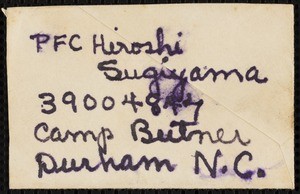 PFC Hiroshi
Sugiyama
39004847
Camp Butner
Durham N.C.